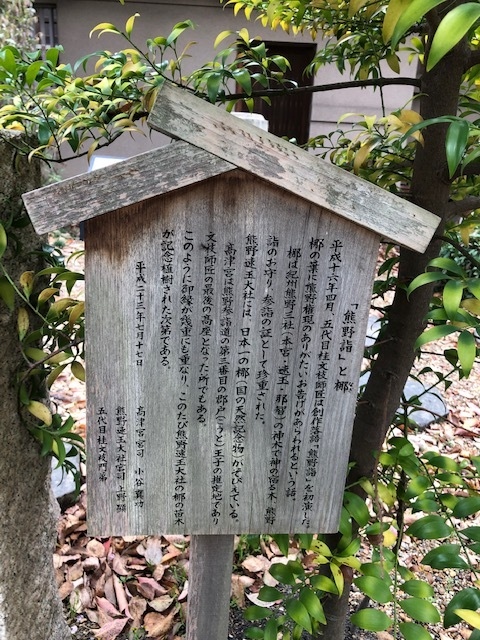 「熊野詣」と梛
平成十六年四月、五代目桂文枝師匠は創作落語「熊野詣」を初演した。
梛の葉に熊野権現のありがたいお告げがあらわれるという話。
梛は紀州熊野三社(本宮、速玉、那智)の神木で神の宿る木、熊野
詣のお守り、参詣の証として珍重された。
熊野速玉大社には、日本一の梛(国の天然記念物)がそびえている。
高津宮は熊野参詣道の第二番目の郡戸(こうと)王子の推定地であり
文枝師匠の最後の高座となった所でもある。
このように御縁が幾重にも重なり、このたび熊野速玉大社の梛の苗木
が記念植樹された次第である。
平成二十三年七月十七日
高津宮宮司 小谷真功
熊野速玉大社宮司 上野顯
五代目桂文枝一門